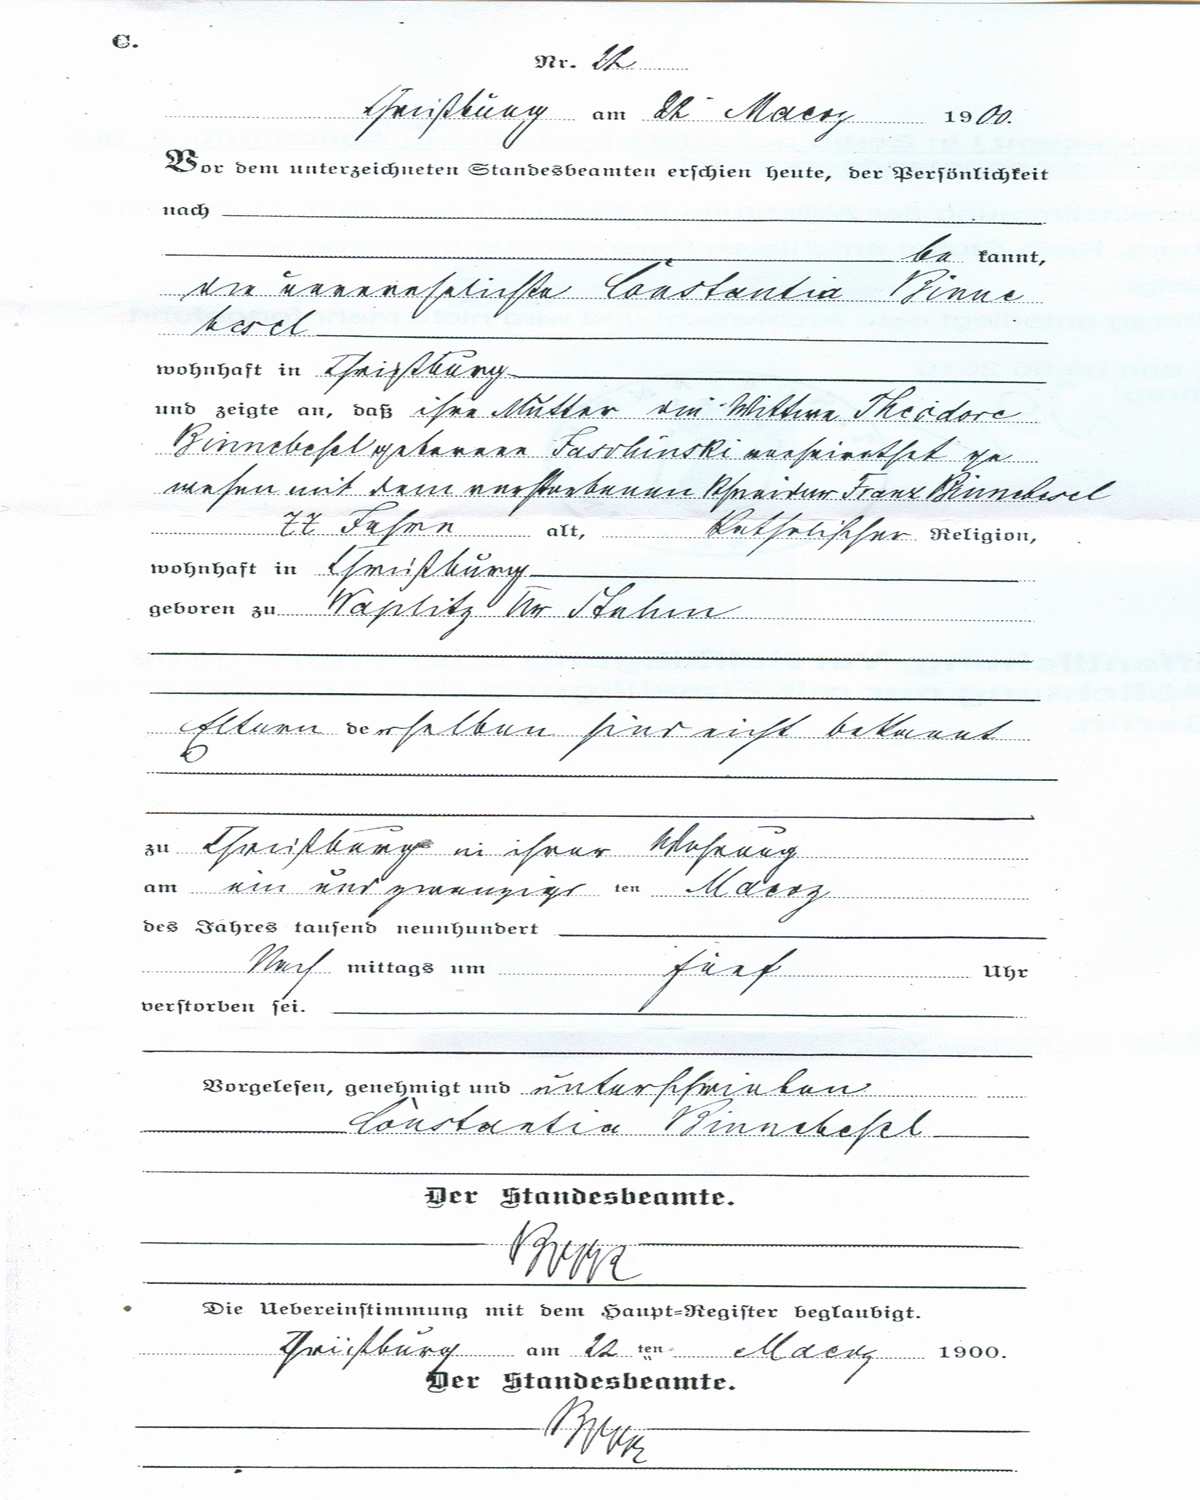 C.
Nr. 22
Christburg am 22 Maerz 1900.
Vor dem unterzeichneten Standesbeamten erschien heute, der Persönlichkeit
nach
be kannt,
die unverehelichte Constantia Binne
besel
wohnhaft in Christburg
und zeigte an, daß ihre Mutter die Wittwe Theodore
Binnebesel geborene Jaschinski verheirathet ge
wesen mit dem verstorbenen Schneider Franz Binnebesel
77 Jahre alt, katholischer Religion,
wohnhaft in Christburg
geboren zu Waplitz Kr Stuhm
Eltern derselben sind nicht bekannt
zu Christburg in ihrer Wohnung
am ein und zwanzigs ten Maerz
des Jahres tausend neunhundert
Nach mittags um fünf Uhr
verstorben sei.
Vorgelesen, genehmigt und unterschrieben
Constantia Binnebesel
Der Standesbeamte.
Die Uebereinstimmung mit dem Haupt=Register beglaubigt.
Christburg am 22 ten Maerz 1900.
Der Standesbeamte.